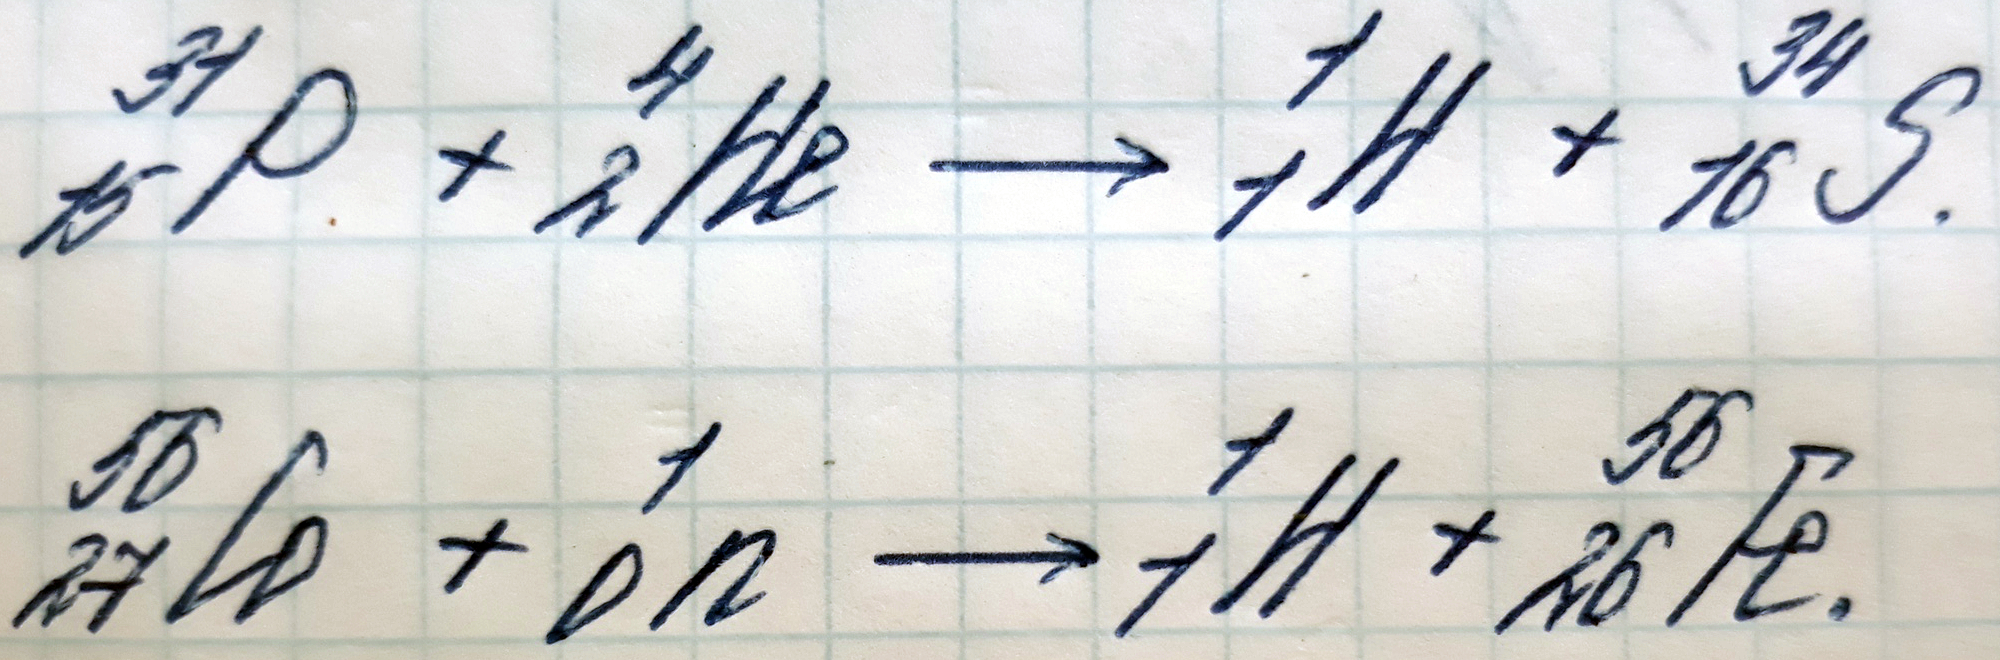 ³¹₁₅P + ⁴₂He ⟶ ¹₁H + ³⁴₁₆S.
⁵⁶₂₇Co + ¹₀n ⟶ ¹₁H + ⁵⁶₂₆Fe.